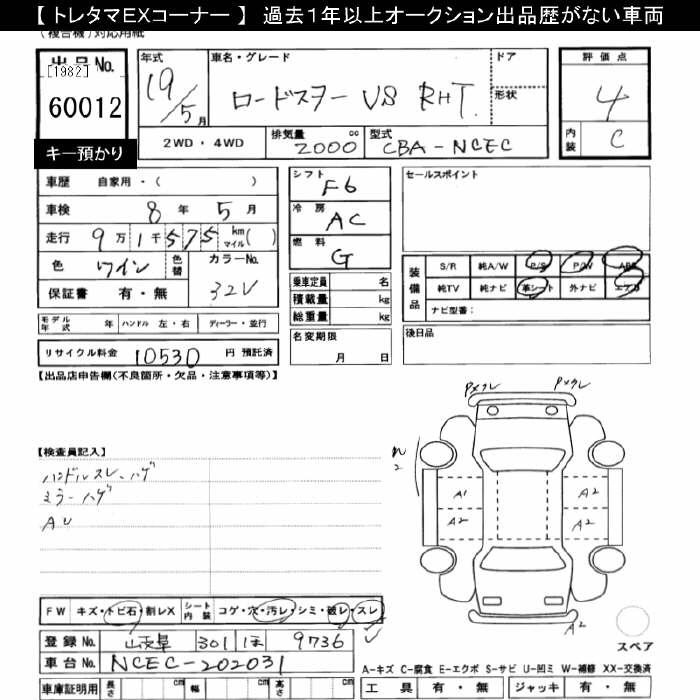 【 トレタマEXコーナー 】 過去1年以上オークション出品歴がない車両
(複合機)対応用紙
出品No.
[1982]
60012
キー預かり
年式
19/5月
車名・グレード
ロードスター VS RHT
ドア
形状
評価点
4
内装
C
2WD・4WD
排気量
2000
cc
型式
CBA-NCEC
車歴 自家用・( )
車検 8年 5月
走行 9万1千575 km マイル( )
色 ワイン
色替
カラーNo. 32V
保証書 有・無
シフト
F6
冷房
AC
燃料
G
乗車定員 名
積載量 kg
総重量 kg
セールスポイント
装備品
S/R 純A/W P/S P/W ABS
純TV 純ナビ 革シート 外ナビ エアB
ナビ型番:
モデル年式 年 ハンドル 左・右 ディーラー・並行
リサイクル料金 10530 円 預託済
名変期限
月 日
後日品
【出品店申告欄(不良箇所・欠品・注意事項等)】
Pメクレ
Pメクレ
【検査員記入】
ハンドルスレ、ハゲ
ミラーハゲ
AU
A1
A2
A2
A2
A2
FW キズ・トビ石・割レX
シート内装 コゲ・穴・汚レ・シミ・破レ・スレ
登録No. 岐阜 301 ほ 9736
車台No. NCEC-202031
スペア
A-キズ C-腐食 E-エクボ S-サビ U-凹ミ W-補修 XX-交換済
車庫証明用 長さ cm 幅 cm 高さ cm
工具 有・無 ジャッキ 有・無